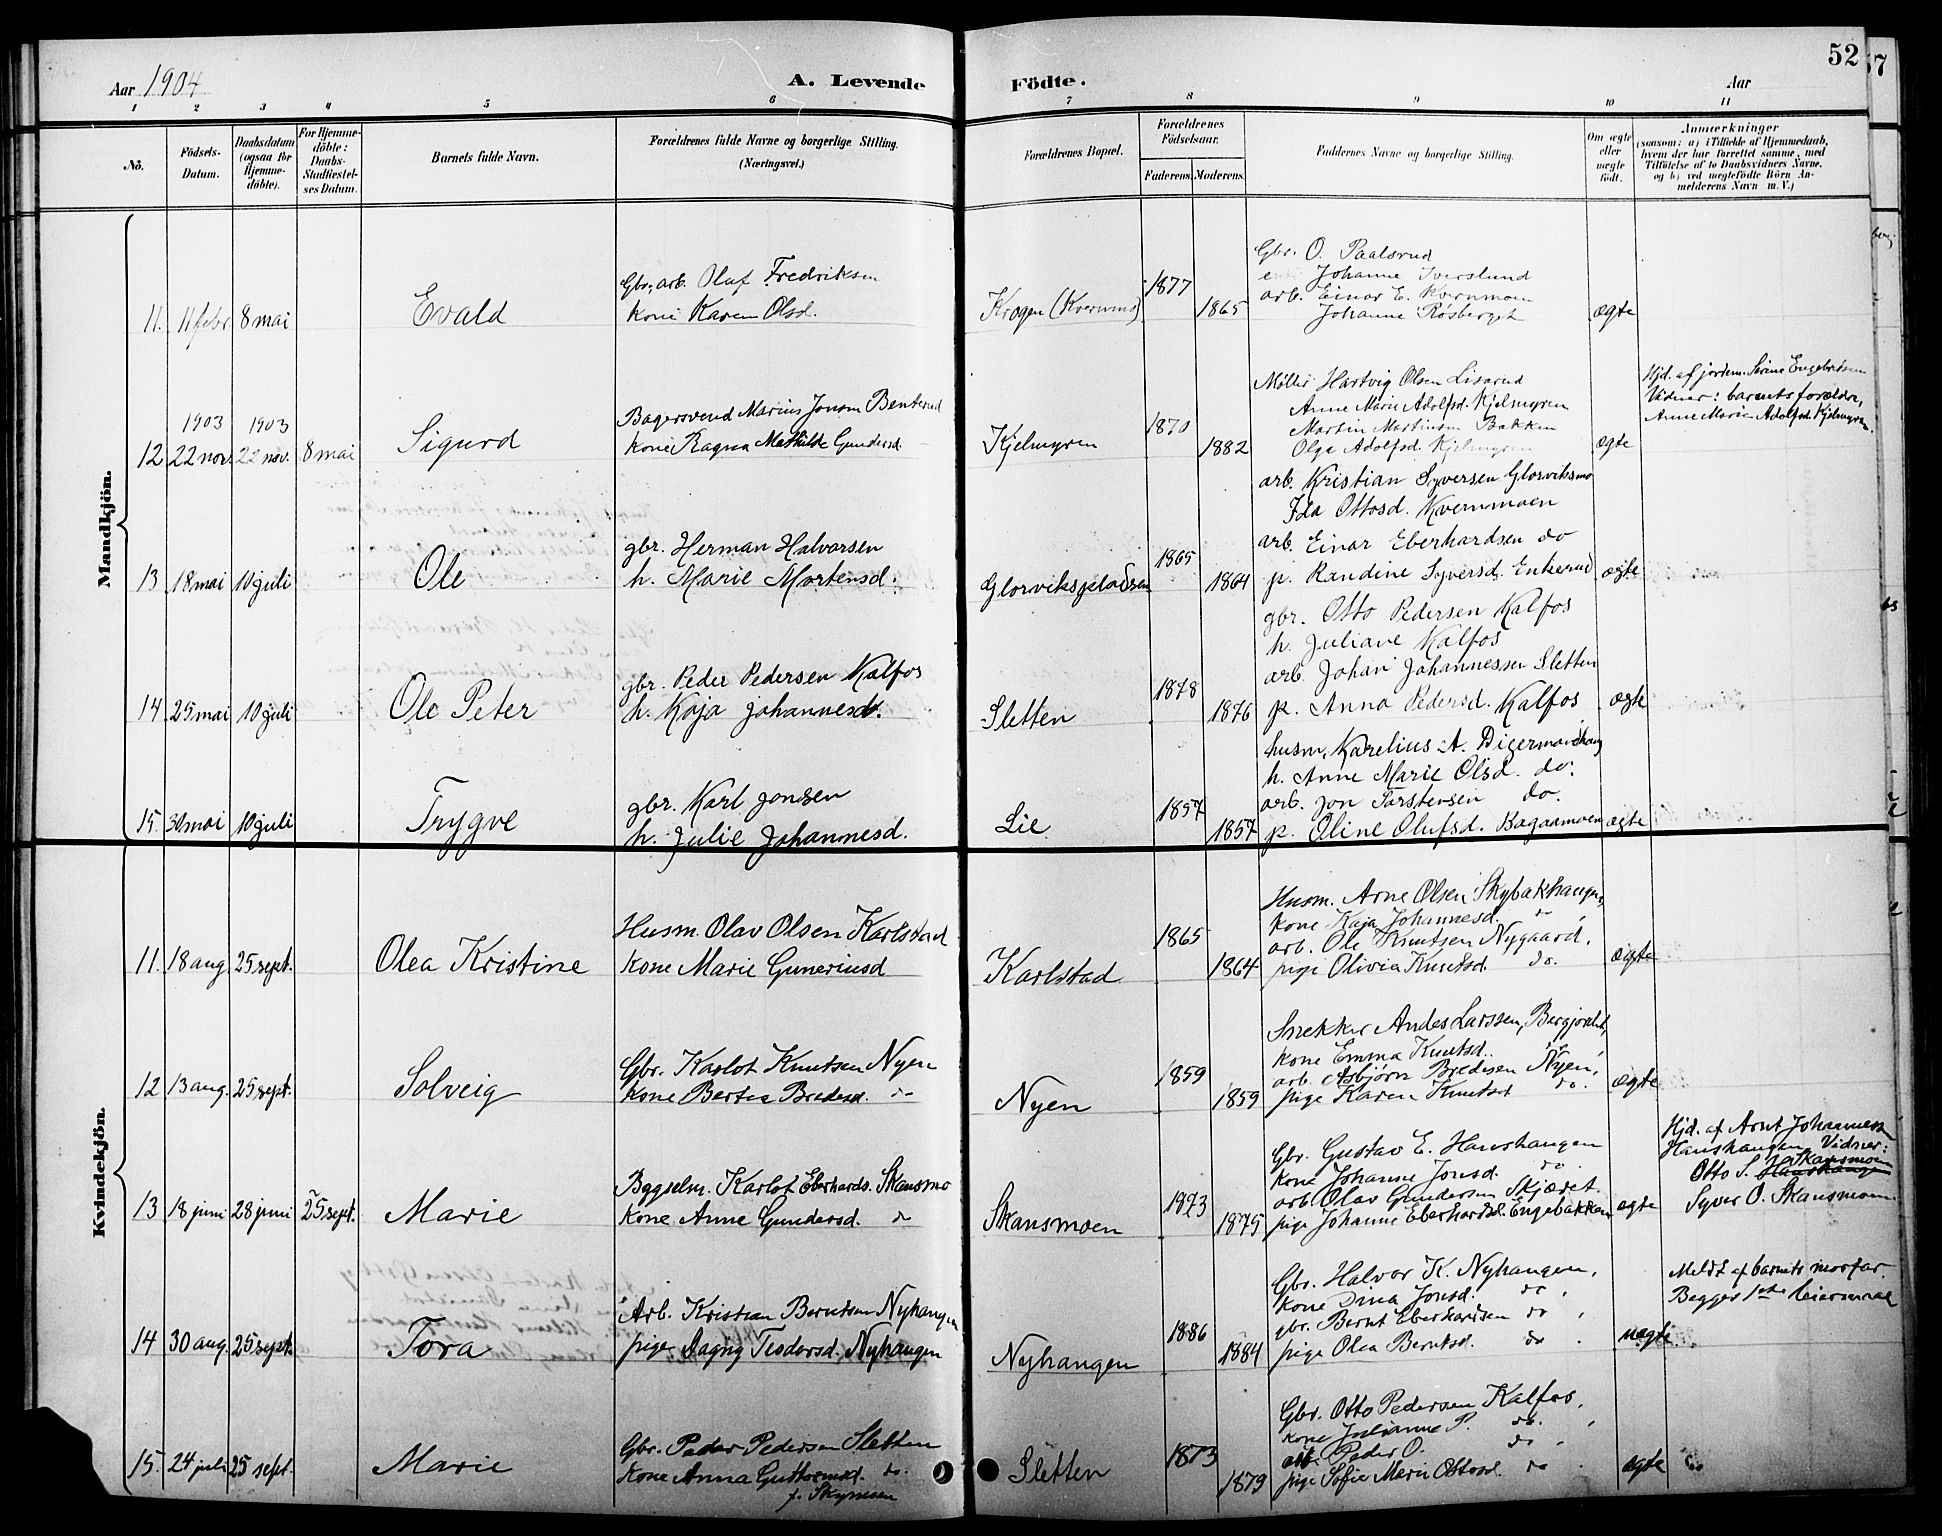 52
Aar 1904
A. Levende Födte.
Aar
1 2 3 4 5 6 7 8 9 10 11
Nô.
Födsels-Datum.
Daabsdatum (ogsaa for Hjemme-döbte).
For Hjemme-döbte: Daabs-Stadfæstel-ses Datum.
Barnets fulde Navn.
Forældrenes fulde Navne og borgerlige Stilling. (Næringsvei.)
Forældrenes Bopæl.
Forældrenes Födselsaar.
Faderens. Moderens.
Faddernes Navne og borgerlige Stilling.
Om ægte eller uægte födt.
Anmærkninger
(saasom: a) i Tilfælde af Hjemmedaab, hvem der har forrettet samme, med Tilföielse af to Daabsvidners Navne, og b) ved uægtefödte Börn An-melderens Navn m. V.)
Mandkjön.
Gbr. arb. Oluf Fredriksen
kone Karen Olsd.
11. 11 febr 8 mai Evald
Krogen (Kvernmo) 1877 1865
Gbr. O. Paalsrud
Johanne Iverslund
arb. Einar E. Kvernmoen
Johanne Røsberget
ægte
1903 1903
12 22 nov. 22 nov. 8 mai Sigurd
Bagersvend Marius Jonsen Benterud
kone Ragna Mathilde Gundersd.
Kjelmyren 1870 1882
Møller Hartvig Olsen Lisarud
Anne Marie Adolfsd. Kjelmyren
Martin Martinsen Bakken
Olga Adolfsd. Kjelmyren
ægte
Hjd. af jordem. Serine Engebretsen
Vidner: barnets forældre,
Anne Marie Adolfsd. Kjelmyren.
13 18 mai 10 juli Ole
gbr. Herman Halvorsen
h. Marie Mortensd.
Glorvikspladsen 1865 1864
arb. Kristian Syversen Glorviksmo
Ida Ottosd. Kvernmoen
arb. Einar Eberhardsen do
p. Randine Syversd. Enkerud
ægte
14. 25 mai 10 juli Ole Peter
gbr. Peder Pedersen Kalfos
h. Kaja Johannesd.
Sletten 1878 1876
gbr. Otto Pedersen Kalfos
h. Juliane Kalfos
arb. Johan Johannessen Sletten
p. Anna Pedersd. Kalfos
ægte
15. 30 mai 10 juli Trygve
gbr. Karl Jonsen
h. Julie Johannesd.
Lie. 1857 1857
husm. Karelius A. Digermoshaug
h. Anne Marie Olsd. do.
arb. Jon Torstensen do.
p. Oline Olufsd. Bagaasmoen
ægte
Kvindekjön.
11. 18 aug 25 sept. Olea Kristine
Husm. Olav Olsen Karlstad
kone Marie Guneriusd
Karlstad 1865 1864
Husm. Arne Olsen Skybakhaugen,
kone Kaja Johannesd. do,
arb. Ole Knutsen Nygaard,
pige Olivia Knutsd. do.
ægte
12 13 aug. 25 sept. Solveig
Gbr. Karlot Knutsen Nyen
kone Bertea Bredesd. do
Nyen 1859 1859
Snekker Andes Larssen, Bergjordet,
kone Emma Knutsd.
arb. Asbjørn Bredesen Nyen,
pige Karen Knutsd do.
ægte
13 18 juni 28 juni 25 sept. Marie
Bygselm. Karlot Eberhards. Skansmo
kone Anne Gundersd. do
Skansmoen 1873 1875
Gbr. Gustav E. Hanshaugen
kone Johanne Jonsd. do
arb. Olav Gundersen Skjæret.
pige Johanne Eberhardsd. Engebakken
ægte
Hjd. af Arnt Johannessen
Hanshaugen Vidner:
Otto S. Hanshaugen Skansmoen
Syver O. Skansmoen.
14 30 aug. 25 sept. Tora
Arb. Kristian Berntsen Nyhaugen
pige Dagny Teodorsd. Nyhaugen
Nyhaugen 1886 1884
Gbr. Halvor K. Nyhaugen,
kone Dina Jonsd. do,
gbr. Bernt Eberhardsen do,
pige Olea Berntsd. do.
uægte
Meldt af barnets morfar.
Begges 1ste leiermaal
15. 24 juli 25 sept. Marie
Gbr. Peder Pedersen Sletten
kone Anna Guttormsd. do.
f. Skynesen
Sletten 1873 1879
Gbr. Otto Pedersen Kalfos,
kone Julianne P. do.,
arb. Peder O. do.
pige Sofie Marie Ottosd. do.
ægte